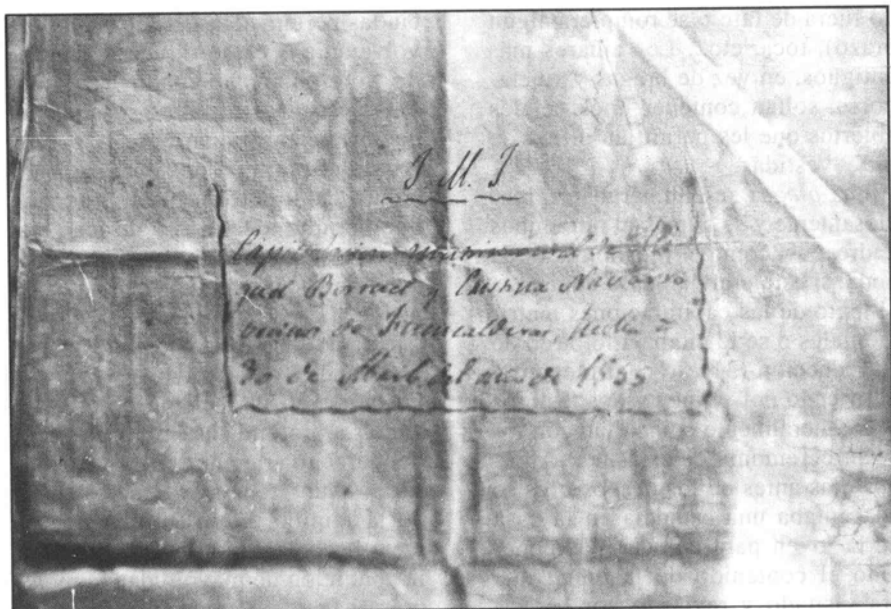 J. M. J
Capitulacion matrimonial de Mi
guel Berned y Cristina Navarro
vecinos de Fuencalderas, hecha a
30 de Abril del año de 1855